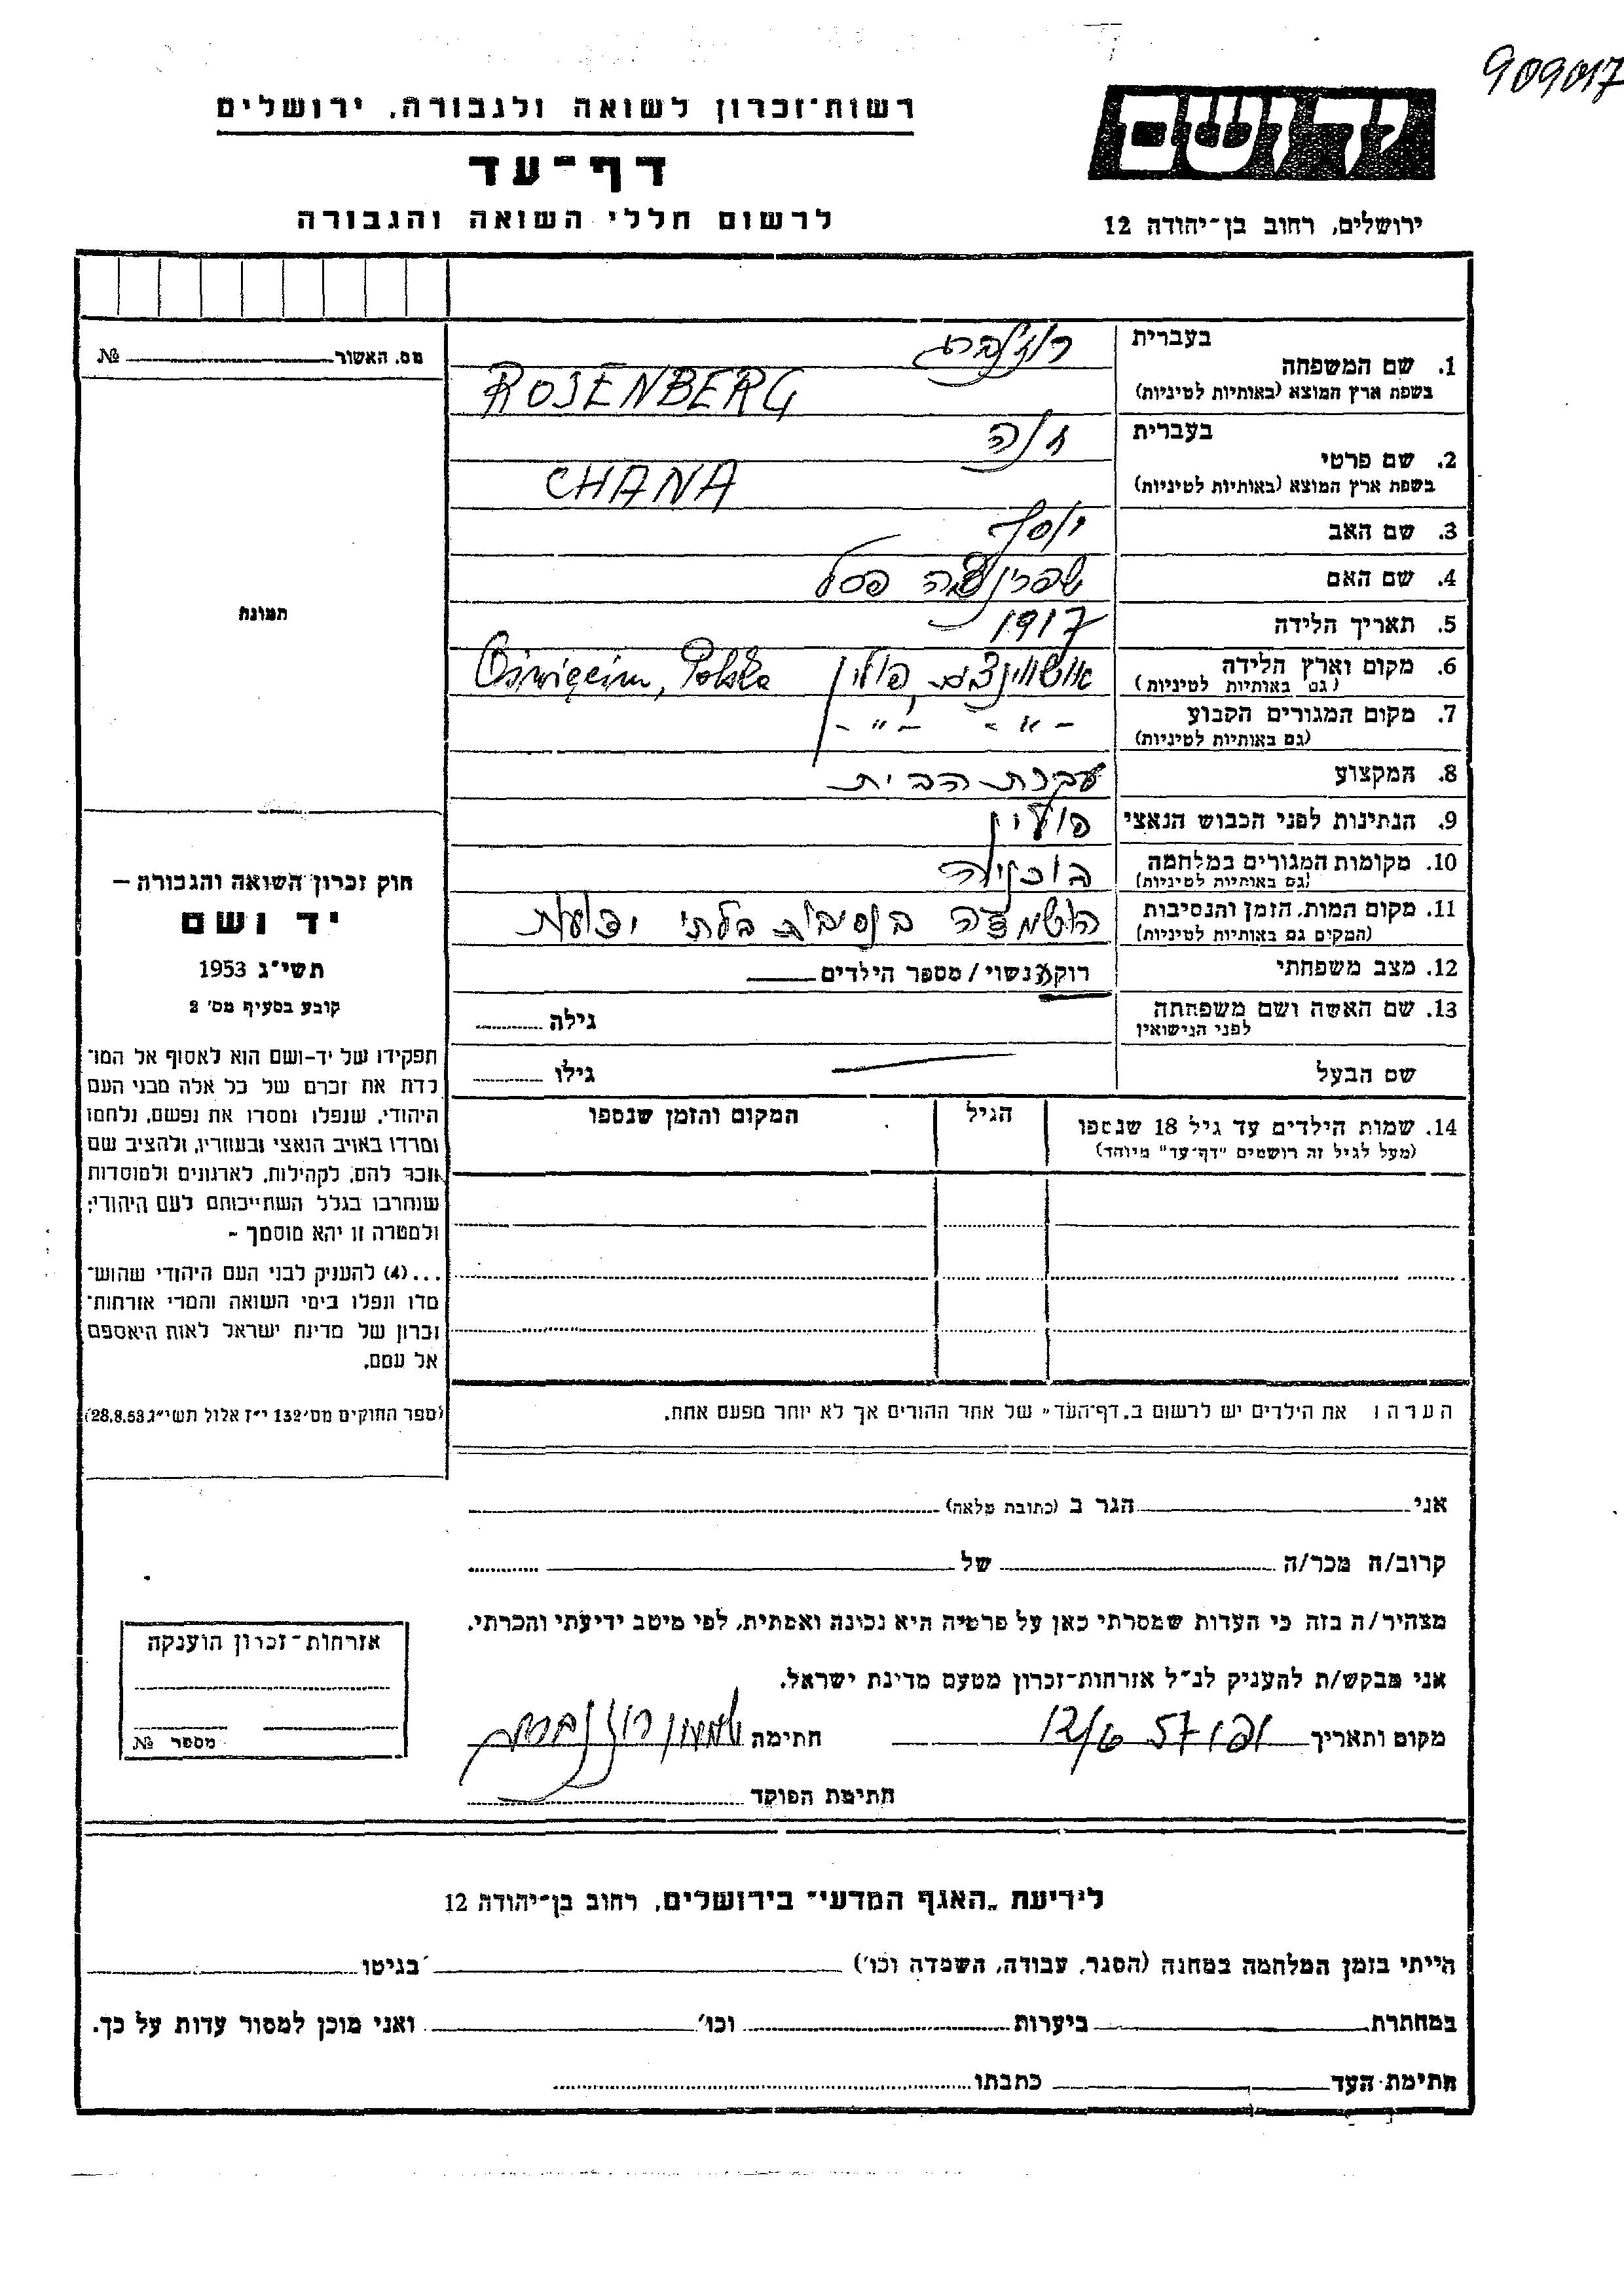 909017
יד ושם
רשות־זכרון לשואה ולגבורה, ירושלים
דף־עד
לרשום חללי השואה והגבורה
ירושלים, רחוב בן־יהודה 12
בעברית
1. שם המשפחה
בשפת ארץ המוצא (באותיות לטיניות)
ROSENBERG
בעברית
חנה
2. שם פרטי
בשפת ארץ המוצא (באותיות לטיניות)
CHANA
3. שם האב יוסף
4. שם האם שפרינצה פסל
5. תאריך הלידה 1917
6. מקום וארץ הלידה אושווינצים, פולין Oświęcim, Polska
(גם באותיות לטיניות)
7. מקום המגורים הקבוע – " – – " –
(גם באותיות לטיניות)
8. המקצוע עקרת הבית
9. הנתינות לפני הכבוש הנאצי פולין
10. מקומות המגורים במלחמה
(גם באותיות לטיניות)
11. מקום המות, הזמן והנסיבות הושמדה בנסיבות בלתי ידועות
(המקום גם באותיות לטיניות)
12. מצב משפחתי רוקה/נשוי/מספר הילדים
13. שם האשה ושם משפחתה גילה
לפני הנישואין
שם הבעל גילו
14. שמות הילדים עד גיל 18 שנספו הגיל המקום והזמן שנספו
(מעל לגיל זה רושמים "דף־עד" מיוחד)
הערה: את הילדים יש לרשום ב„דף־העד" של אחד ההורים אך לא יותר מפעם אחת.
מס. האשור №
תמונת
חוק זכרון השואה והגבורה –
יד ושם
תשי"ג 1953
קובע בסעיף מס' 2
תפקידו של יד-ושם הוא לאסוף אל המו־
לדת את זכרם של כל אלה מבני העם
היהודי, שנפלו ומסרו את נפשם, נלחמו
ומרדו באויב הנאצי ובעוזריו, ולהציב שם
וזכר להם, לקהילות, לארגונים ולמוסדות
שנחרבו בגלל השתייכותם לעם היהודי;
ולמטרה זו יהא מוסמך –
...(4) להעניק לבני העם היהודי שהוש־
מדו ונפלו בימי השואה והמרי אזרחות־
זכרון של מדינת ישראל לאות היאספם
אל עמם.
(ספר החוקים מס' 132 י"ז אלול תשי"ג 28.8.53)
אני הגר ב (כתובת מלאה)
קרוב/ה מכר/ה של
מצהיר/ה בזה כי העדות שמסרתי כאן על פרטיה היא נכונה ואמתית, לפי מיטב ידיעתי והכרתי.
אני מבקש/ת להעניק לנ"ל אזרחות־זכרון מטעם מדינת ישראל.
מקום ותאריך 12/6 57 חתימה שמעון רוזנברג
חתימת הפוקד
אזרחות־זכרון הוענקה
מספר №
לידיעת „האגף המדעי" בירושלים, רחוב בן־יהודה 12
הייתי בזמן המלחמה במחנה (הסגר, עבודה, השמדה וכו') בגיטו
במחתרת ביערות וכו' ואני מוכן למסור עדות על כך.
חתימת העד כתבתו